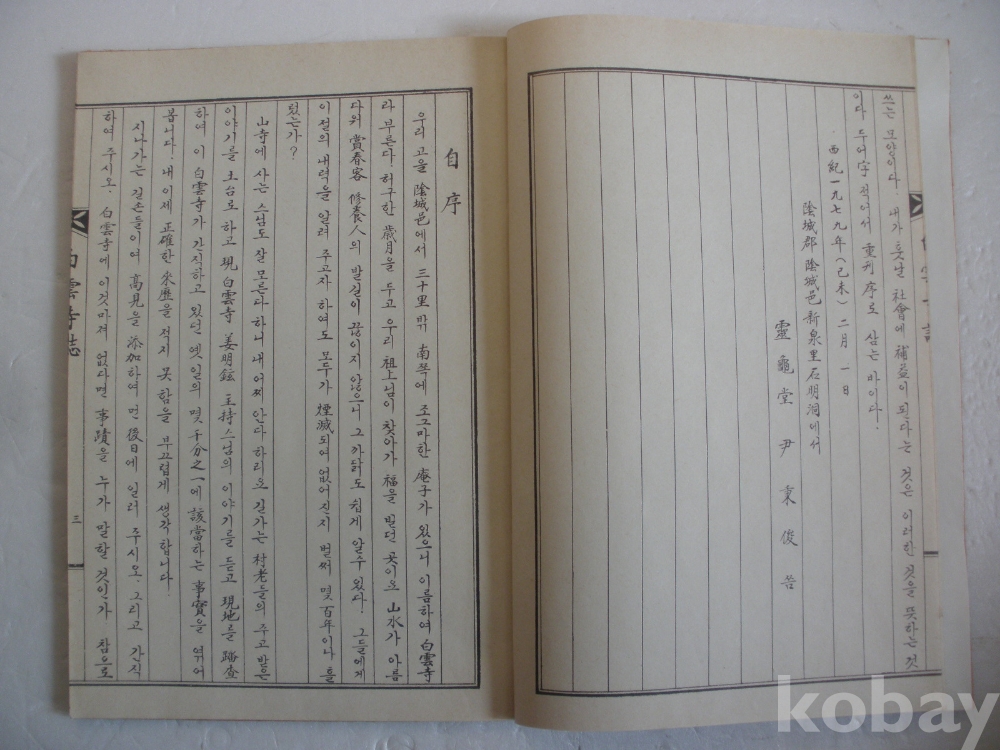 쓰는 모양이다. 내가 훗날 社會에 補益이 된다는 것은 이러한 것을 뜻하는 것
이다 두어字 적어서 重刊序로 삼는 바이다.
西紀一九七九年(己未) 二月 一日
陰城郡 陰城邑 新泉里 石明洞에서
靈龜堂 尹秉俊 苔
白雲寺誌
自序
우리 고을 陰城邑에서 三十里밖 南쪽에 조그마한 庵子가 있으니 이름하여 白雲寺
라 부른다 허구한 歲月을 두고 우리 祖上님이 찾아가 福을 빌던 곳이요 山水가 아름
다워 賞春客 修養人의 발길이 끊이지 않으니 그 까닭도 쉽게 알수 있다. 그들에게
이절의 내력을 알려 주고자 하여도 모두가 煙滅되여 없어진지 벌써 몇百年이나 를
렀는가?
山寺에 사는 스님도 잘 모른다 하니 내 어찌 안다 하리요 길가는 村老들의 주고 받은
이야기를 土台로 하고 現 白雲寺 姜明鉉 主持스님의 이야기를 듣고 現地를 踏査
하여 이 白雲寺가 간직하고 있던 옛일의 몇 千分之一에 該當하는 事實을 엮어
봅니다. 내 이제 正確한 來歷을 적지 못함을 부끄럽게 생각합니다.
지나가는 길손들이여 高見을 添加하여 먼 後日에 일러 주시오. 그리고 간직
하여 주시오. 白雲寺에 이것마져 없다면 事蹟을 누가 말할 것인가 참으로
白雲寺誌
三
kobay